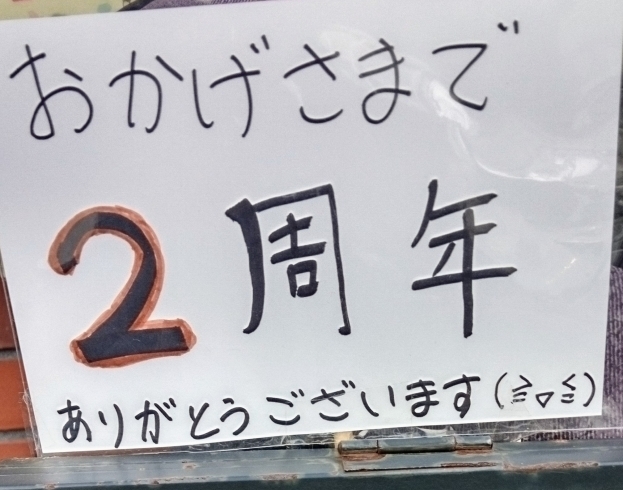 おかげさまで
2周年
ありがとうございます(≧▽≦)